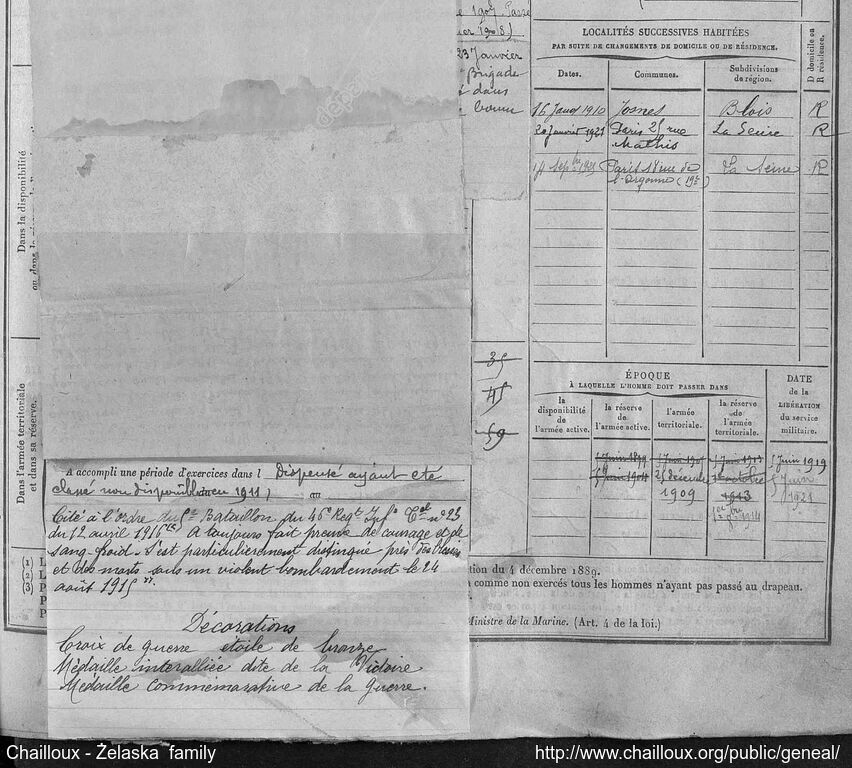 Passé
23 Janvier
Brigade
dans
LOCALITÉS SUCCESSIVES HABITÉES
PAR SUITE DE CHANGEMENTS DE DOMICILE OU DE RÉSIDENCE.
D domicile ou
R résidence.
Dates. Communes. Subdivisions
de région.
16 1910 Josnes Blois R
20 Janvier 1921 Paris 25 rue La Seine R
Mathis
14 Sept 1921 Paris rue de La Seine R
l'Argonne (19e)
Dans la disponibilité
ou dans la
35
45
59
ÉPOQUE
À LAQUELLE L'HOMME DOIT PASSER DANS
DATE
de la
LIBÉRATION
du service
militaire.
la
disponibilité
de l'armée active.
la réserve
de
l'armée active.
l'armée
territoriale.
la réserve
de
l'armée
territoriale.
1909
1913
1914
Juin 1919
1921
Dans l'armée territoriale
et dans sa réserve.
A accompli une période d'exercices dans l Dispensé ayant été
classé non disponible en 1911 au
Cité à l'ordre du Bataillon du 46e Regt Infie n° 23
du 12 avril 1916 A toujours fait preuve de courage et de
sang froid. S'est particulièrement distingué près des blessés
et des morts sous un violent bombardement le 24
août 1915
(1)
(2)
(3)
tion du 4 décembre 1889.
comme non exercés tous les hommes n'ayant pas passé au drapeau.
Ministre de la Marine. (Art. 4 de la loi.)
Décorations
Croix de guerre étoile de bronze
Médaille interalliée dite de la Victoire
Médaille commémorative de la Guerre.
Chailloux - Żelaska family
http://www.chailloux.org/public/geneal/